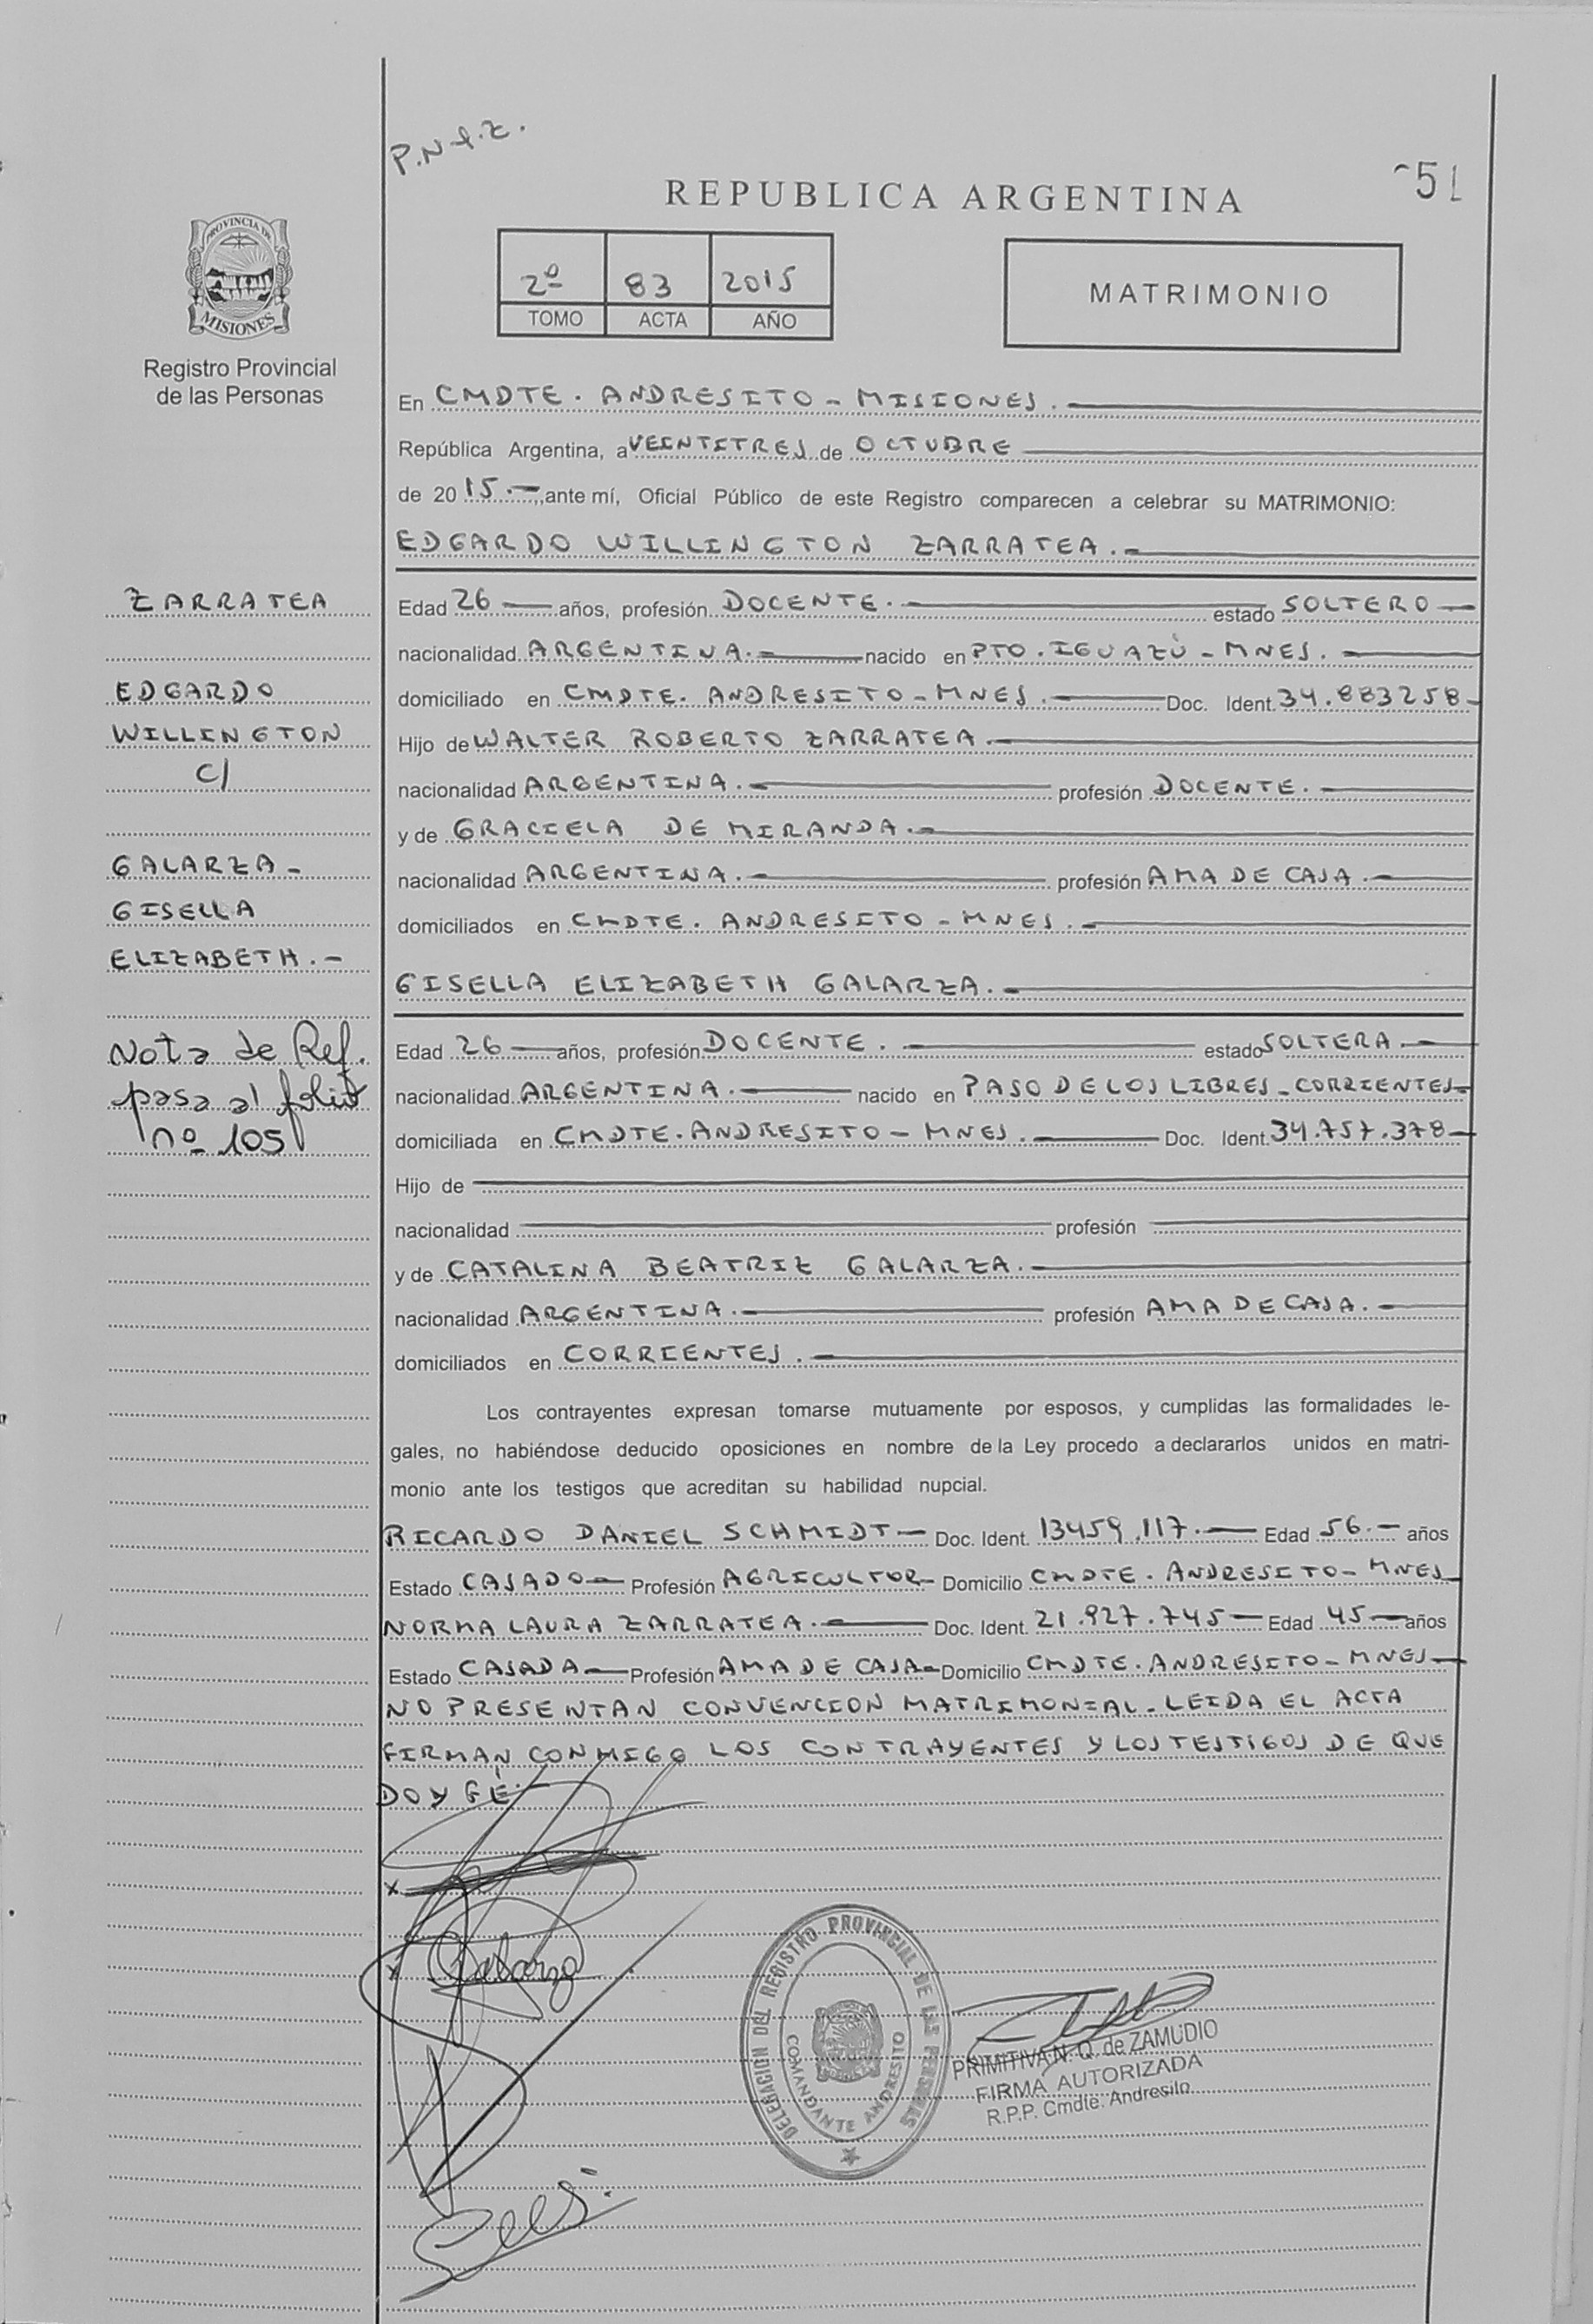 P.N.
REPUBLICA ARGENTINA
51
PROVINCIA DE
MISIONES
Registro Provincial
de las Personas
2º 83 2015
TOMO ACTA AÑO
MATRIMONIO
En CMDTE. ANDRESITO - MISIONES.
República Argentina, a VEINTITRES de OCTUBRE
de 2015.-, ante mí, Oficial Público de este Registro comparecen a celebrar su MATRIMONIO:
EDGARDO WILLINGTON ZARRATEA.-
ZARRATEA
EDGARDO
WILLINGTON
C/
GALARZA-
GISELLA
ELIZABETH.-
Nota de Ref.
pasa al folio
nº 105
Edad 26 años, profesión DOCENTE. estado SOLTERO
nacionalidad ARGENTINA.- nacido en PTO. IGUAZÚ - MNES.
domiciliado en CMDTE. ANDRESITO - MNES. Doc. Ident. 34.883258-
Hijo de WALTER ROBERTO ZARRATEA.-
nacionalidad ARGENTINA.- profesión DOCENTE.-
y de GRACIELA DE MIRANDA.-
nacionalidad ARGENTINA.- profesión AMA DE CASA.-
domiciliados en CMDTE. ANDRESITO - MNES.-
GISELLA ELIZABETH GALARZA.-
Edad 26 años, profesión DOCENTE. estado SOLTERA.-
nacionalidad ARGENTINA.- nacido en PASO DE LOS LIBRES - CORRIENTES-
domiciliada en CMDTE. ANDRESITO - MNES.- Doc. Ident. 34.757.378-
Hijo de
nacionalidad profesión
y de CATALINA BEATRIZ GALARZA.-
nacionalidad ARGENTINA.- profesión AMA DE CASA.-
domiciliados en CORRIENTES.-
Los contrayentes expresan tomarse mutuamente por esposos, y cumplidas las formalidades le-
gales, no habiéndose deducido oposiciones en nombre de la Ley procedo a declararlos unidos en matri-
monio ante los testigos que acreditan su habilidad nupcial.
RICARDO DANIEL SCHMIDT- Doc. Ident. 13459.117.- Edad 56.- años
Estado CASADO- Profesión AGRICULTOR- Domicilio CMDTE. ANDRESITO - MNES
NORMA LAURA ZARRATEA.- Doc. Ident. 21.927.745- Edad 45- años
Estado CASADA- Profesión AMA DE CASA- Domicilio CMDTE. ANDRESITO - MNES-
NO PRESENTAN CONVENCION MATRIMONIAL - LEIDA EL ACTA
FIRMAN CONMIGO LOS CONTRAYENTES Y LOS TESTIGOS DE QUE
DOY FÉ.-
x
x Galarza
DELEGACION DEL REGISTRO PROVINCIAL DE LAS PERSONAS
COMANDANTE ANDRESITO
PRIMITIVA N. Q. de ZAMUDIO
FIRMA AUTORIZADA
R.P.P. Cmdte. Andresito